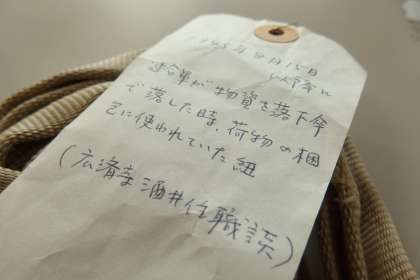 1945年8月15日
以降に
連合軍が物資を落下傘
で落した時、荷物の梱
包に使われていた紐
(広済寺酒井住職談)